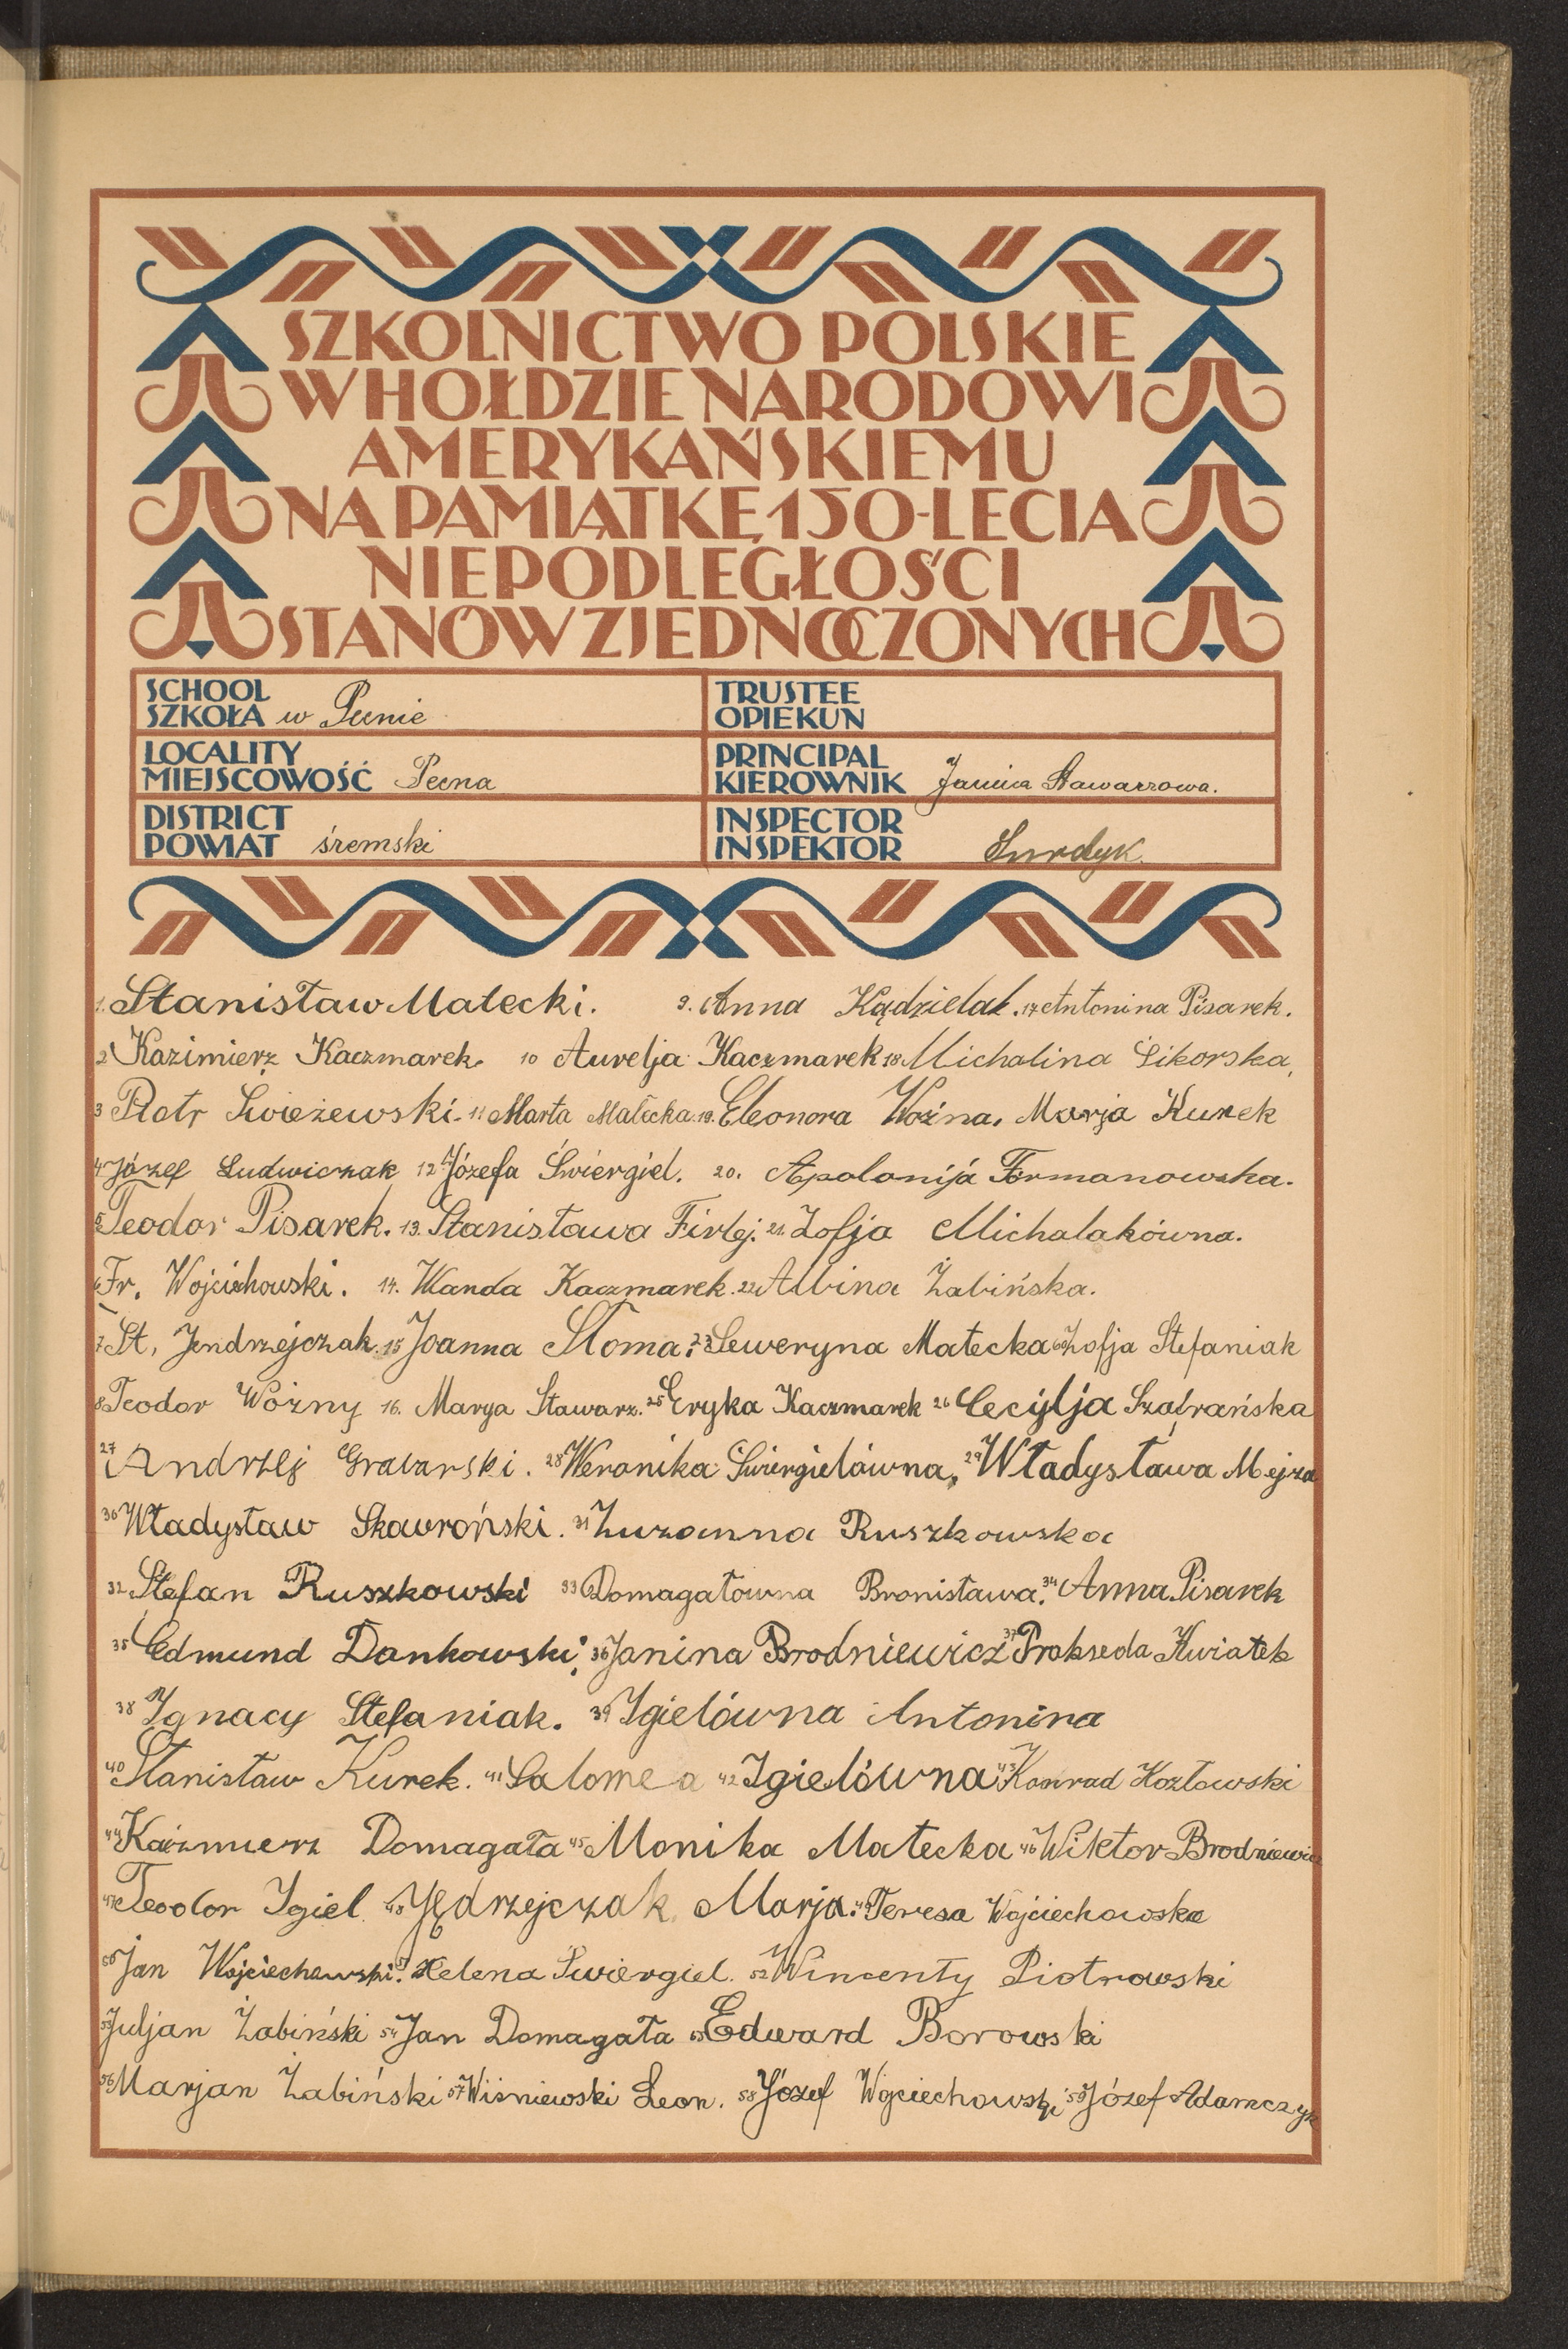 SZKOLNICTWO POLSKIE
W HOŁDZIE NARODOWI
AMERYKAŃSKIEMU
NA PAMIĄTKĘ 150-LECIA
NIEPODLEGŁOŚCI
STANÓW ZJEDNOCZONYCH
SCHOOL
SZKOŁA w Pecnie
TRUSTEE
OPIEKUN
LOCALITY
MIEJSCOWOŚĆ Pecna
PRINCIPAL
KIEROWNIK Janina Stawarzowa.
DISTRICT
POWIAT śremski
INSPECTOR
INSPEKTOR Surdyk
1. Stanisław Małecki. 9. Anna Kądzielak. 17 Antonina Pisarek.
2 Kazimierz Kaczmarek 10 Aurelja Kaczmarek 18 Michalina Sikorska,
3 Piotr Swieżewski. 11 Marta Małecka. 19. Eleonora Woźna, Marja Kurek
4 Józef Ludwiczak 12 Józefa Świergiel. 20. Apolonija Formanowska.
5 Teodor Pisarek. 13. Stanisława Firlej. 21. Zofja Michalakówna.
6 Fr. Wojciechowski. 14. Wanda Kaczmarek. 22 Albina Żabińska.
7 St. Jendrzejczak. 15 Joanna Słoma. 23 Seweryna Małecka Zofja Stefaniak
8 Teodor Woźny 16. Marya Stawarz. 25 Eryka Kaczmarek 26 Cecylja Szafrańska
27 Andrzej Grabarski. 28 Weronika Świergielówna, 29 Władysława Mejza
30 Władysław Skawroński. 31 Zuzanna Ruszkowska
32 Stefan Ruszkowski 33 Domagałówna Bronisława. 34 Anna Pisarek
35 Edmund Dankowski, 36 Janina Brodniewicz 37 Prakseda Kwiatek
38 Ignacy Stefaniak. 39 Igielówna Antonina
40 Stanisław Kurek. 41 Salomea 42 Igielówna 43 Konrad Kozłowski
44 Kaźmierz Domagała 45 Monika Małecka 46 Wiktor Brodniewicz
47 Teodor Igiel 48 Jędrzejczak Marja. 49 Teresa Wojciechowska
50 Jan Wojciechowski. 51 Helena Swiergiel. 52 Wincenty Piotrowski
53 Juljan Żabiński 54 Jan Domagała 55 Edward Borowski
56 Marjan Żabiński 57 Wiśniewski Leon. 58 Józef Wojciechowski 59 Józef Adamczyk